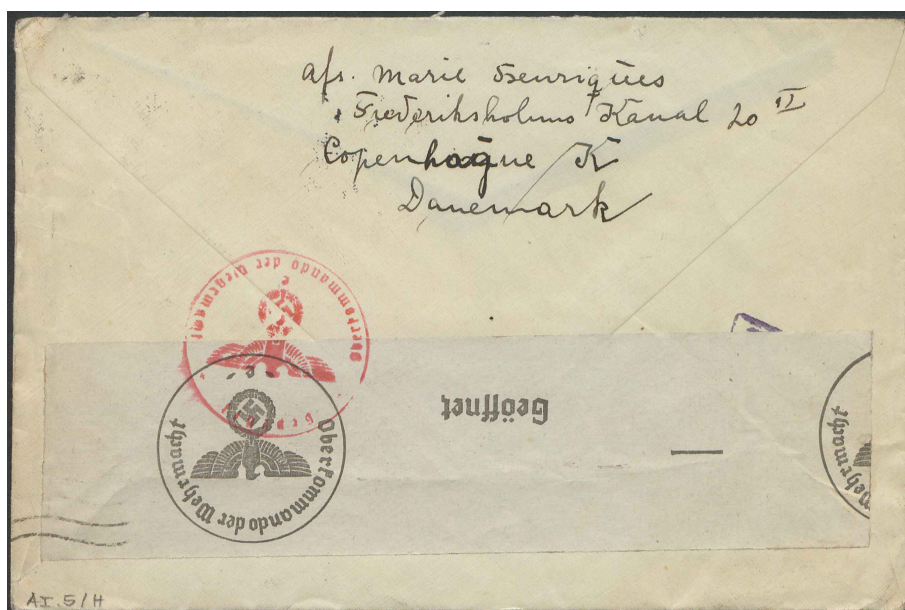 afs. Marie Henriques
Frederiksholms Kanal 20 II
Copenhague K
Danemark
Oberkommando der Wehrmacht
Geprüft
e
Geöffnet
Oberkommando der Wehrmacht
e
Wehrmacht
AI.5/H